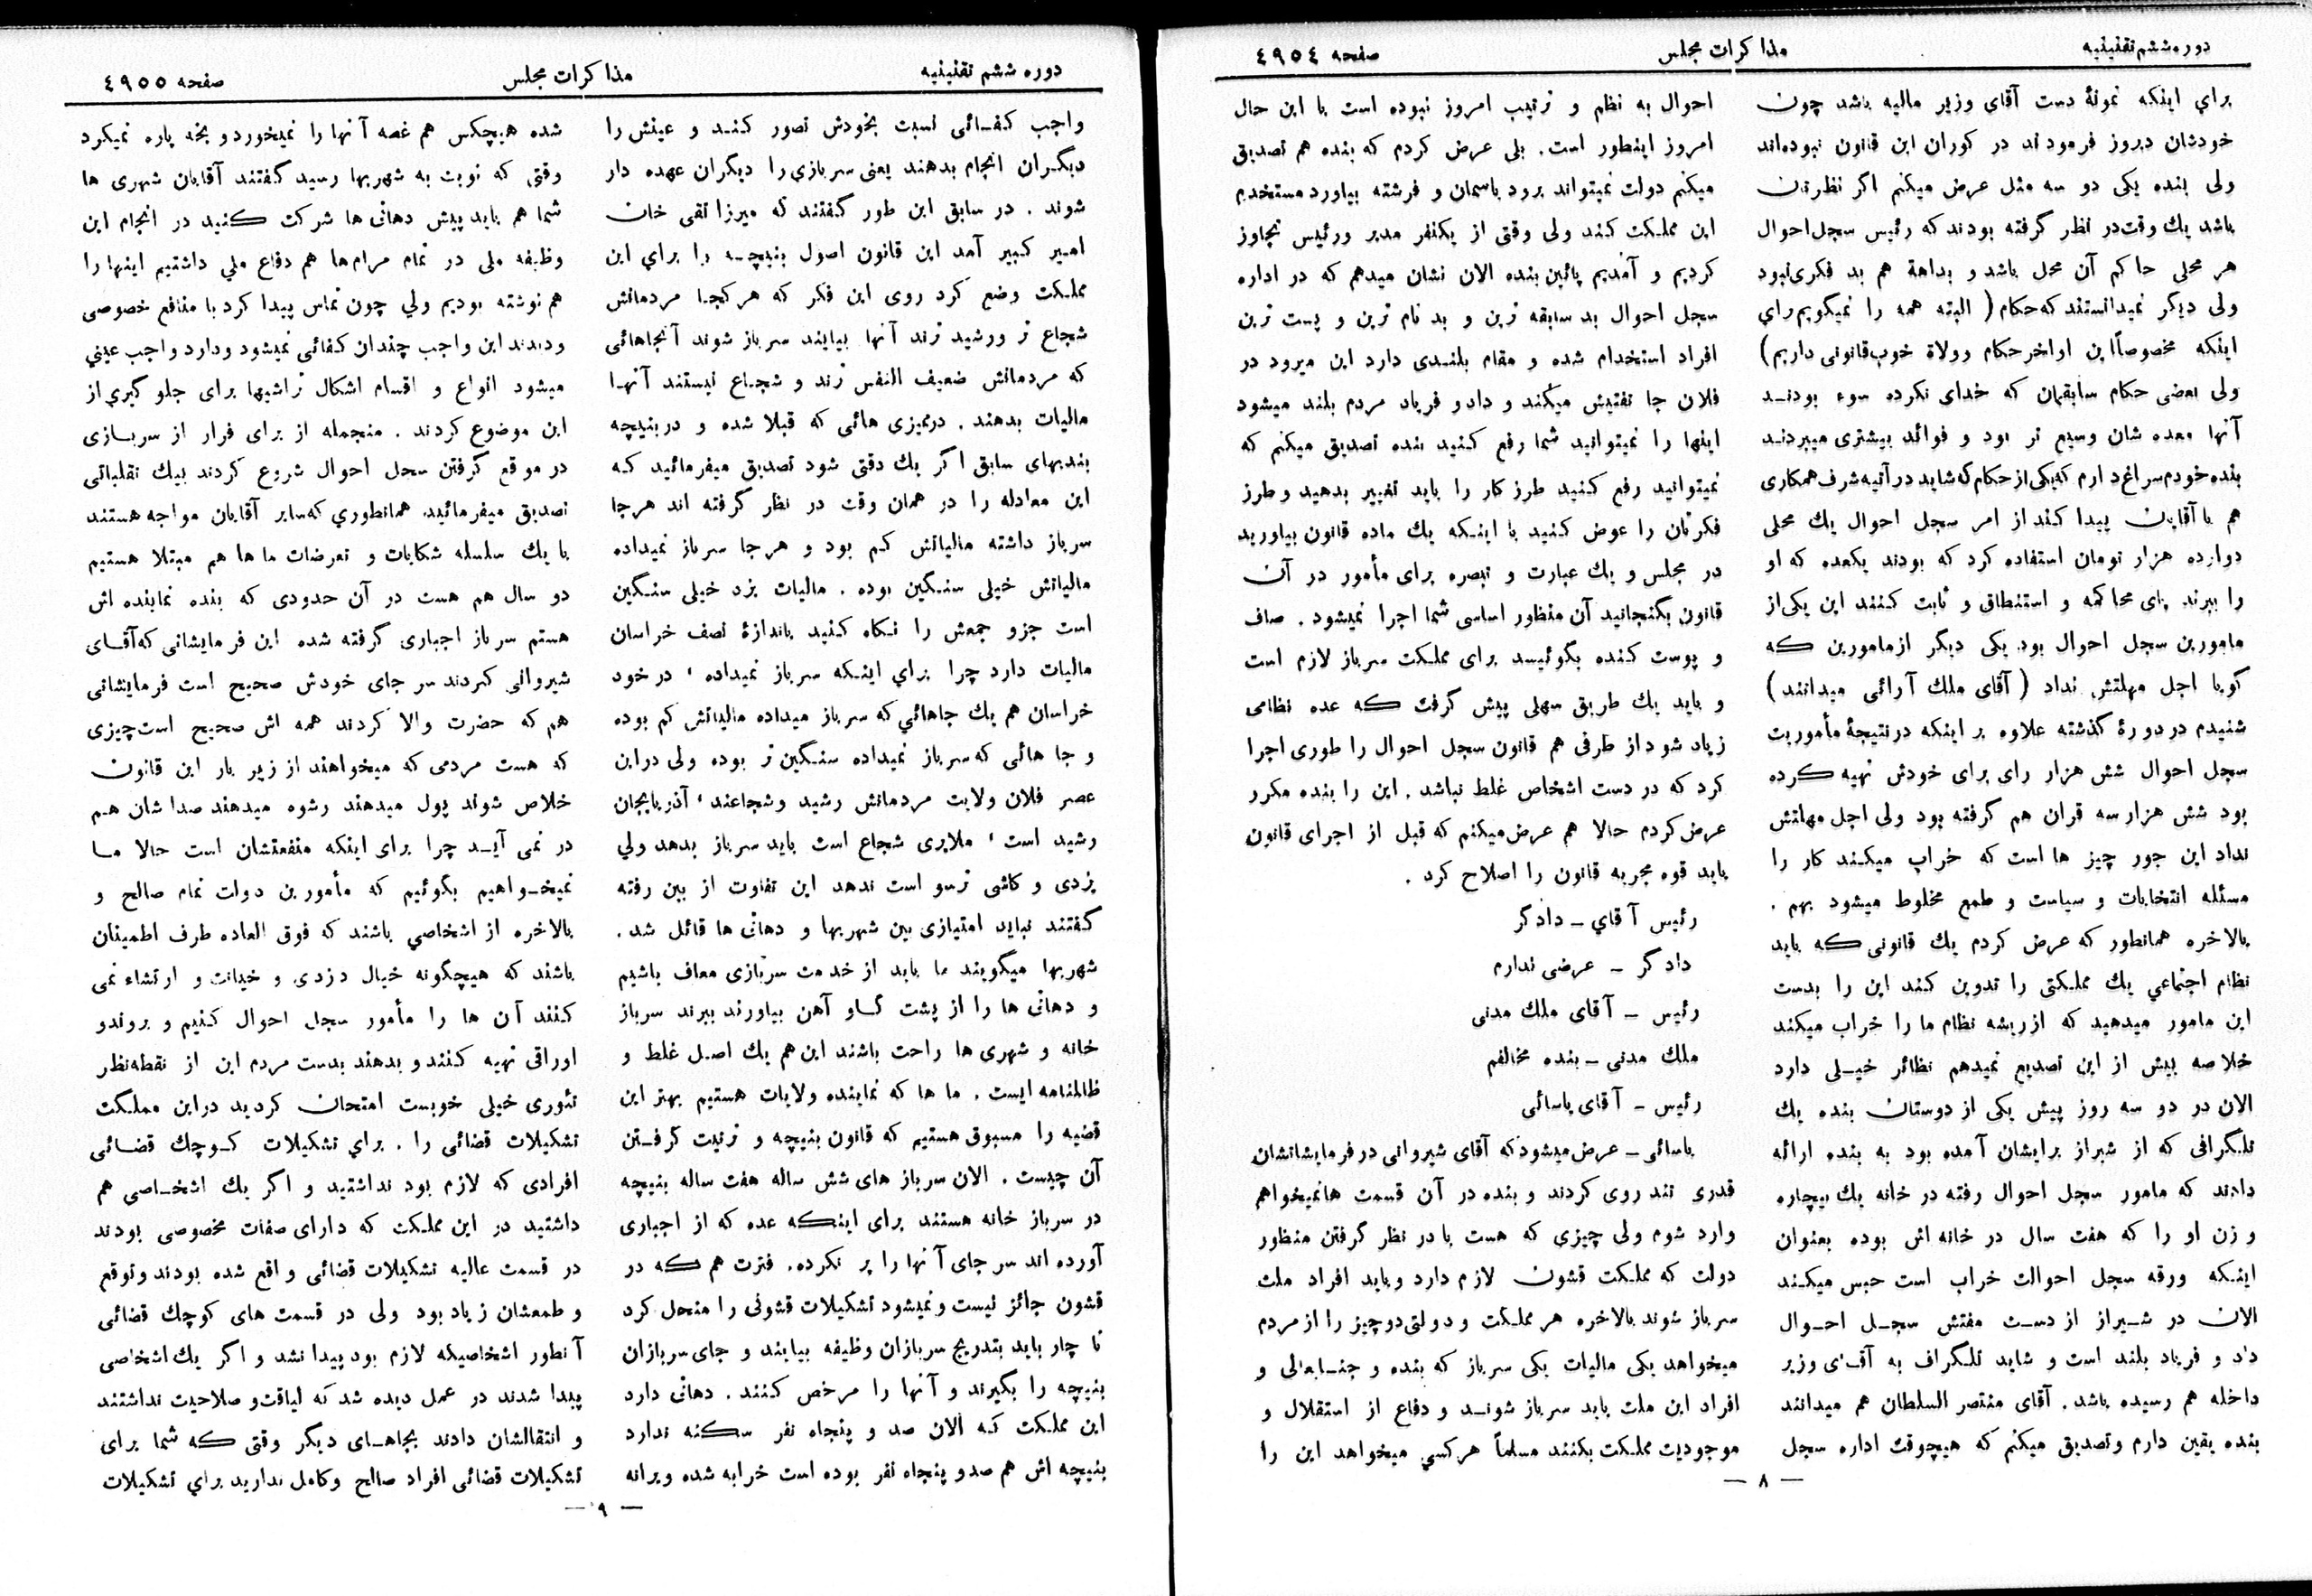 دوره ششم تقنینیه
مذاکرات مجلس
صفحه ٤٩٥٤
برای اینکه نمونهٔ دست آقای وزیر مالیه باشد چون
خودشان دیروز فرمودند در کوران این قانون نبوده‌اند
ولی بنده یکی دو سه مثل عرض میکنم اگر نظرتان
باشد یك وقت در نظر گرفته بودند که رئیس سجل احوال
هر محلی حاکم آن محل باشد و بداهة هم بد فکری نبود
ولی دیگر نمیدانستند که حکام ( البته همه را نمیگویم برای
اینکه مخصوصاً این اواخر حکام وولاة خوب قانونی داریم )
ولی بعضی حکام سابقمان که خدای نکرده سوء بودند
آنها معده شان وسیع تر بود و فوائد بیشتری میبردند
بنده خودم سراغ دارم که یکی از حکام که شاید در آتیه شرف همکاری
هم با آقایان پیدا کند از امر سجل احوال یك محلی
دوازده هزار تومان استفاده کرد که بودند یکعده که او
را ببرند پای محاکمه و استنطاق و ثابت کنند این یکی از
مامورین سجل احوال بود یکی دیگر از مامورین که
گویا اجل مهلتش نداد ( آقای ملك آرائی میدانند )
شنیدم در دورهٔ گذشته علاوه بر اینکه در نتیجهٔ مأموریت
سجل احوال شش هزار رای برای خودش تهیه کرده
بود شش هزار سه قران هم گرفته بود ولی اجل مهلتش
نداد این جور چیز ها است که خراب میکند کار را
مسئله انتخابات و سیاست و طمع مخلوط میشود بهم .
بالاخره همانطور که عرض کردم یك قانونی که باید
نظام اجتماعي یك مملکتی را تدوین کند این را بدست
این مامور میدهید که از ریشه نظام ما را خراب میکند
خلاصه بیش از این تصدیع نمیدهم نظائر خیلی دارد
الان در دو سه روز پیش یکی از دوستان بنده یك
تلگرافی که از شیراز برایشان آمده بود به بنده ارائه
دادند که مامور سجل احوال رفته در خانه یك بیچاره
و زن او را که هفت سال در خانه اش بوده بعنوان
اینکه ورقه سجل احوالت خراب است حبس میکند
الان در شیراز از دست مفتش سجل احوال
داد و فریاد بلند است و شاید تلگراف به آقای وزیر
داخله هم رسیده باشد . آقای منتصر السلطان هم میدانند
بنده یقین دارم و تصدیق میکنم که هیچوقت اداره سجل
احوال به نظم و ترتیب امروز نبوده است با این حال
امروز اینطور است . بلی عرض کردم که بنده هم تصدیق
میکنم دولت نمیتواند برود باسمان و فرشته بیاورد مستخدم
این مملکت کند ولی وقتی از یکنفر مدیر ورئیس تجاوز
کردیم و آمدیم پائین بنده الان نشان میدهم که در اداره
سجل احوال بد سابقه ترین و بد نام ترین و پست ترین
افراد استخدام شده و مقام بلندی دارد این میرود در
فلان جا تفتیش میکند و داد و فریاد مردم بلند میشود
اینها را نمیتوانید شما رفع کنید بنده تصدیق میکنم که
نمیتوانید رفع کنید طرز کار را باید تغییر بدهید و طرز
فکرتان را عوض کنید با اینکه یك ماده قانون بیاورید
در مجلس و یك عبارت و تبصره برای مأمور در آن
قانون بگنجانید آن منظور اساسی شما اجرا نمیشود . صاف
و پوست کنده بگوئید برای مملکت سرباز لازم است
و باید یك طریق سهلی پیش گرفت که عده نظامی
زیاد شود از طرفی هم قانون سجل احوال را طوری اجرا
کرد که در دست اشخاص غلط نباشد . این را بنده مکرر
عرض کردم حالا هم عرض میکنم که قبل از اجرای قانون
باید قوه مجریه قانون را اصلاح کرد .
رئیس آقاي ــ دادگر
دادگر ــ عرضی ندارم
رئیس ــ آقای ملك مدنی
ملك مدنی ــ بنده مخالفم
رئیس ــ آقای یاسائی
یاسائی ــ عرض میشود که آقای شیروانی در فرمایشاتشان
قدری تند روی کردند و بنده در آن قسمت ها نمیخواهم
وارد شوم ولی چیزی که هست با در نظر گرفتن منظور
دولت که مملکت قشون لازم دارد و باید افراد ملت
سرباز شوند بالاخره هر مملکت و دولتی دو چیز را از مردم
میخواهد یکی مالیات یکی سرباز که بنده و جنابعالی و
افراد این ملت باید سرباز شوند و دفاع از استقلال و
موجودیت مملکت بکنند مسلماً هر کسي میخواهد این را
— ٨ —
دوره ششم تقنینیه
مذاکرات مجلس
صفحه ٤٩٥٥
واجب کفائی نسبت بخودش تصور کند و عینش را
دیگران انجام بدهند یعنی سربازي را دیگران عهده دار
شوند . در سابق این طور گفتند که میرزا تقی خان
امیر کبیر آمد این قانون اصول بنیچه را براي این
مملکت وضع کرد روی این فکر که هر کجا مردمانش
شجاع تر ورشید ترند آنها بیایند سرباز شوند آنجاهائی
که مردمانش ضعیف النفس ترند و شجاع نیستند آنها
مالیات بدهند . درممیزی هائی که قبلا شده و در بنیچه
بندیهای سابق اگر یك دقتی شود تصدیق میفرمائید که
این معادله را در همان وقت در نظر گرفته اند هر جا
سرباز داشته مالیاتش کم بود و هر جا سرباز نمیداده
مالیاتش خیلی سنگین بوده . مالیات یزد خیلی سنگین
است جزو جمعش را نگاه کنید باندازهٔ نصف خراسان
مالیات دارد چرا براي اینکه سرباز نمیداده ، در خود
خراسان هم یك جاهائي که سرباز میداده مالیاتش کم بوده
و جا هائی که سرباز نمیداده سنگین تر بوده ولی در این
عصر فلان ولایت مردمانش رشید و شجاعند ، آذربایجان
رشید است ، ملایری شجاع است باید سرباز بدهد ولي
یزدی و کاشی ترسو است ندهد این تفاوت از بین رفته
گفتند نباید امتیازی بین شهریها و دهاتی ها قائل شد .
شهریها میگویند ما باید از خدمت سربازی معاف باشیم
و دهاتی ها را از پشت گاو آهن بیاورند ببرند سرباز
خانه و شهری ها راحت باشند این هم یك اصل غلط و
ظالمانه ایست . ما ها که نماینده ولایات هستیم بهتر این
قضیه را مسبوق هستیم که قانون بنیچه و ترتیب گرفتن
آن چیست . الان سرباز های شش ساله هفت ساله بنیچه
در سرباز خانه هستند برای اینکه عده که از اجباری
آورده اند سر جای آنها را پر نکرده . فترت هم که در
قشون جائز نیست و نمیشود تشکیلات قشونی را منحل کرد
نا چار باید بتدریج سربازان وظیفه بیایند و جای سربازان
بنیچه را بگیرند و آنها را مرخص کنند . دهاتی دارد
این مملکت که الان صد و پنجاه نفر سکنه ندارد
بنیچه اش هم صد و پنجاه نفر بوده است خرابه شده ویرانه
شده هیچکس هم غصه آنها را نمیخورد و یخه پاره نمیکرد
وقتی که نوبت به شهریها رسید گفتند آقایان شهری ها
شما هم باید پیش دهاتی ها شرکت کنید در انجام این
وظیفه ملی در تمام مرام‌ها هم دفاع ملي داشتیم اینها را
هم نوشته بودیم ولي چون تماس پیدا کرد با منافع خصوصی
ودیدند این واجب چندان کفائی نمیشود ودارد واجب عیني
میشود انواع و اقسام اشکال تراشیها برای جلو گیري از
این موضوع کردند . منجمله از برای فرار از سربازی
در موقع گرفتن سجل احوال شروع کردند بیك تقلباتی
تصدیق میفرمائید همانطوري که سایر آقایان مواجه هستند
با یك سلسله شکایات و تعرضات ما ها هم مبتلا هستیم
دو سال هم هست در آن حدودی که بنده نماینده اش
هستم سرباز اجباری گرفته شده این فرمایشاتی که آقای
شیروانی کردند سر جای خودش صحیح است فرمایشاتی
هم که حضرت والا کردند همه اش صحیح است چیزی
که هست مردمی که میخواهند از زیر بار این قانون
خلاص شوند پول میدهند رشوه میدهند صداشان هم
در نمی آید چرا برای اینکه منفعتشان است حالا ما
نمیخواهیم بگوئیم که مأمورین دولت تمام صالح و
بالاخره از اشخاصي باشند که فوق العاده طرف اطمینان
باشند که هیچگونه خیال دزدی و خیانت و ارتشاء نمی
کنند آن ها را مأمور سجل احوال کنیم و بروند و
اوراقی تهیه کنند و بدهند بدست مردم این از نقطه نظر
تئوری خیلی خوبست امتحان کردید در این مملکت
تشکیلات قضائی را . براي تشکیلات کوچك قضائی
افرادی که لازم بود نداشتید و اگر یك اشخاصی هم
داشتید در این مملکت که دارای صفات مخصوصی بودند
در قسمت عالیه تشکیلات قضائی واقع شده بودند وتوقع
و طمعشان زیاد بود ولی در قسمت های کوچك قضائی
آنطور اشخاصیکه لازم بود پیدا نشد و اگر یك اشخاصی
پیدا شدند در عمل دیده شد که لیاقت و صلاحیت نداشتند
و انتقالشان دادند بجاهای دیگر وقتی که شما برای
تشکیلات قضائی افراد صالح وکامل ندارید براي تشکیلات
— ٩ —